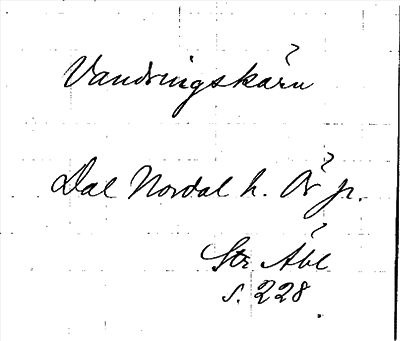 Vandringskärn
Dal Nordal h. Ör sn.
Str Åbl
s. 228